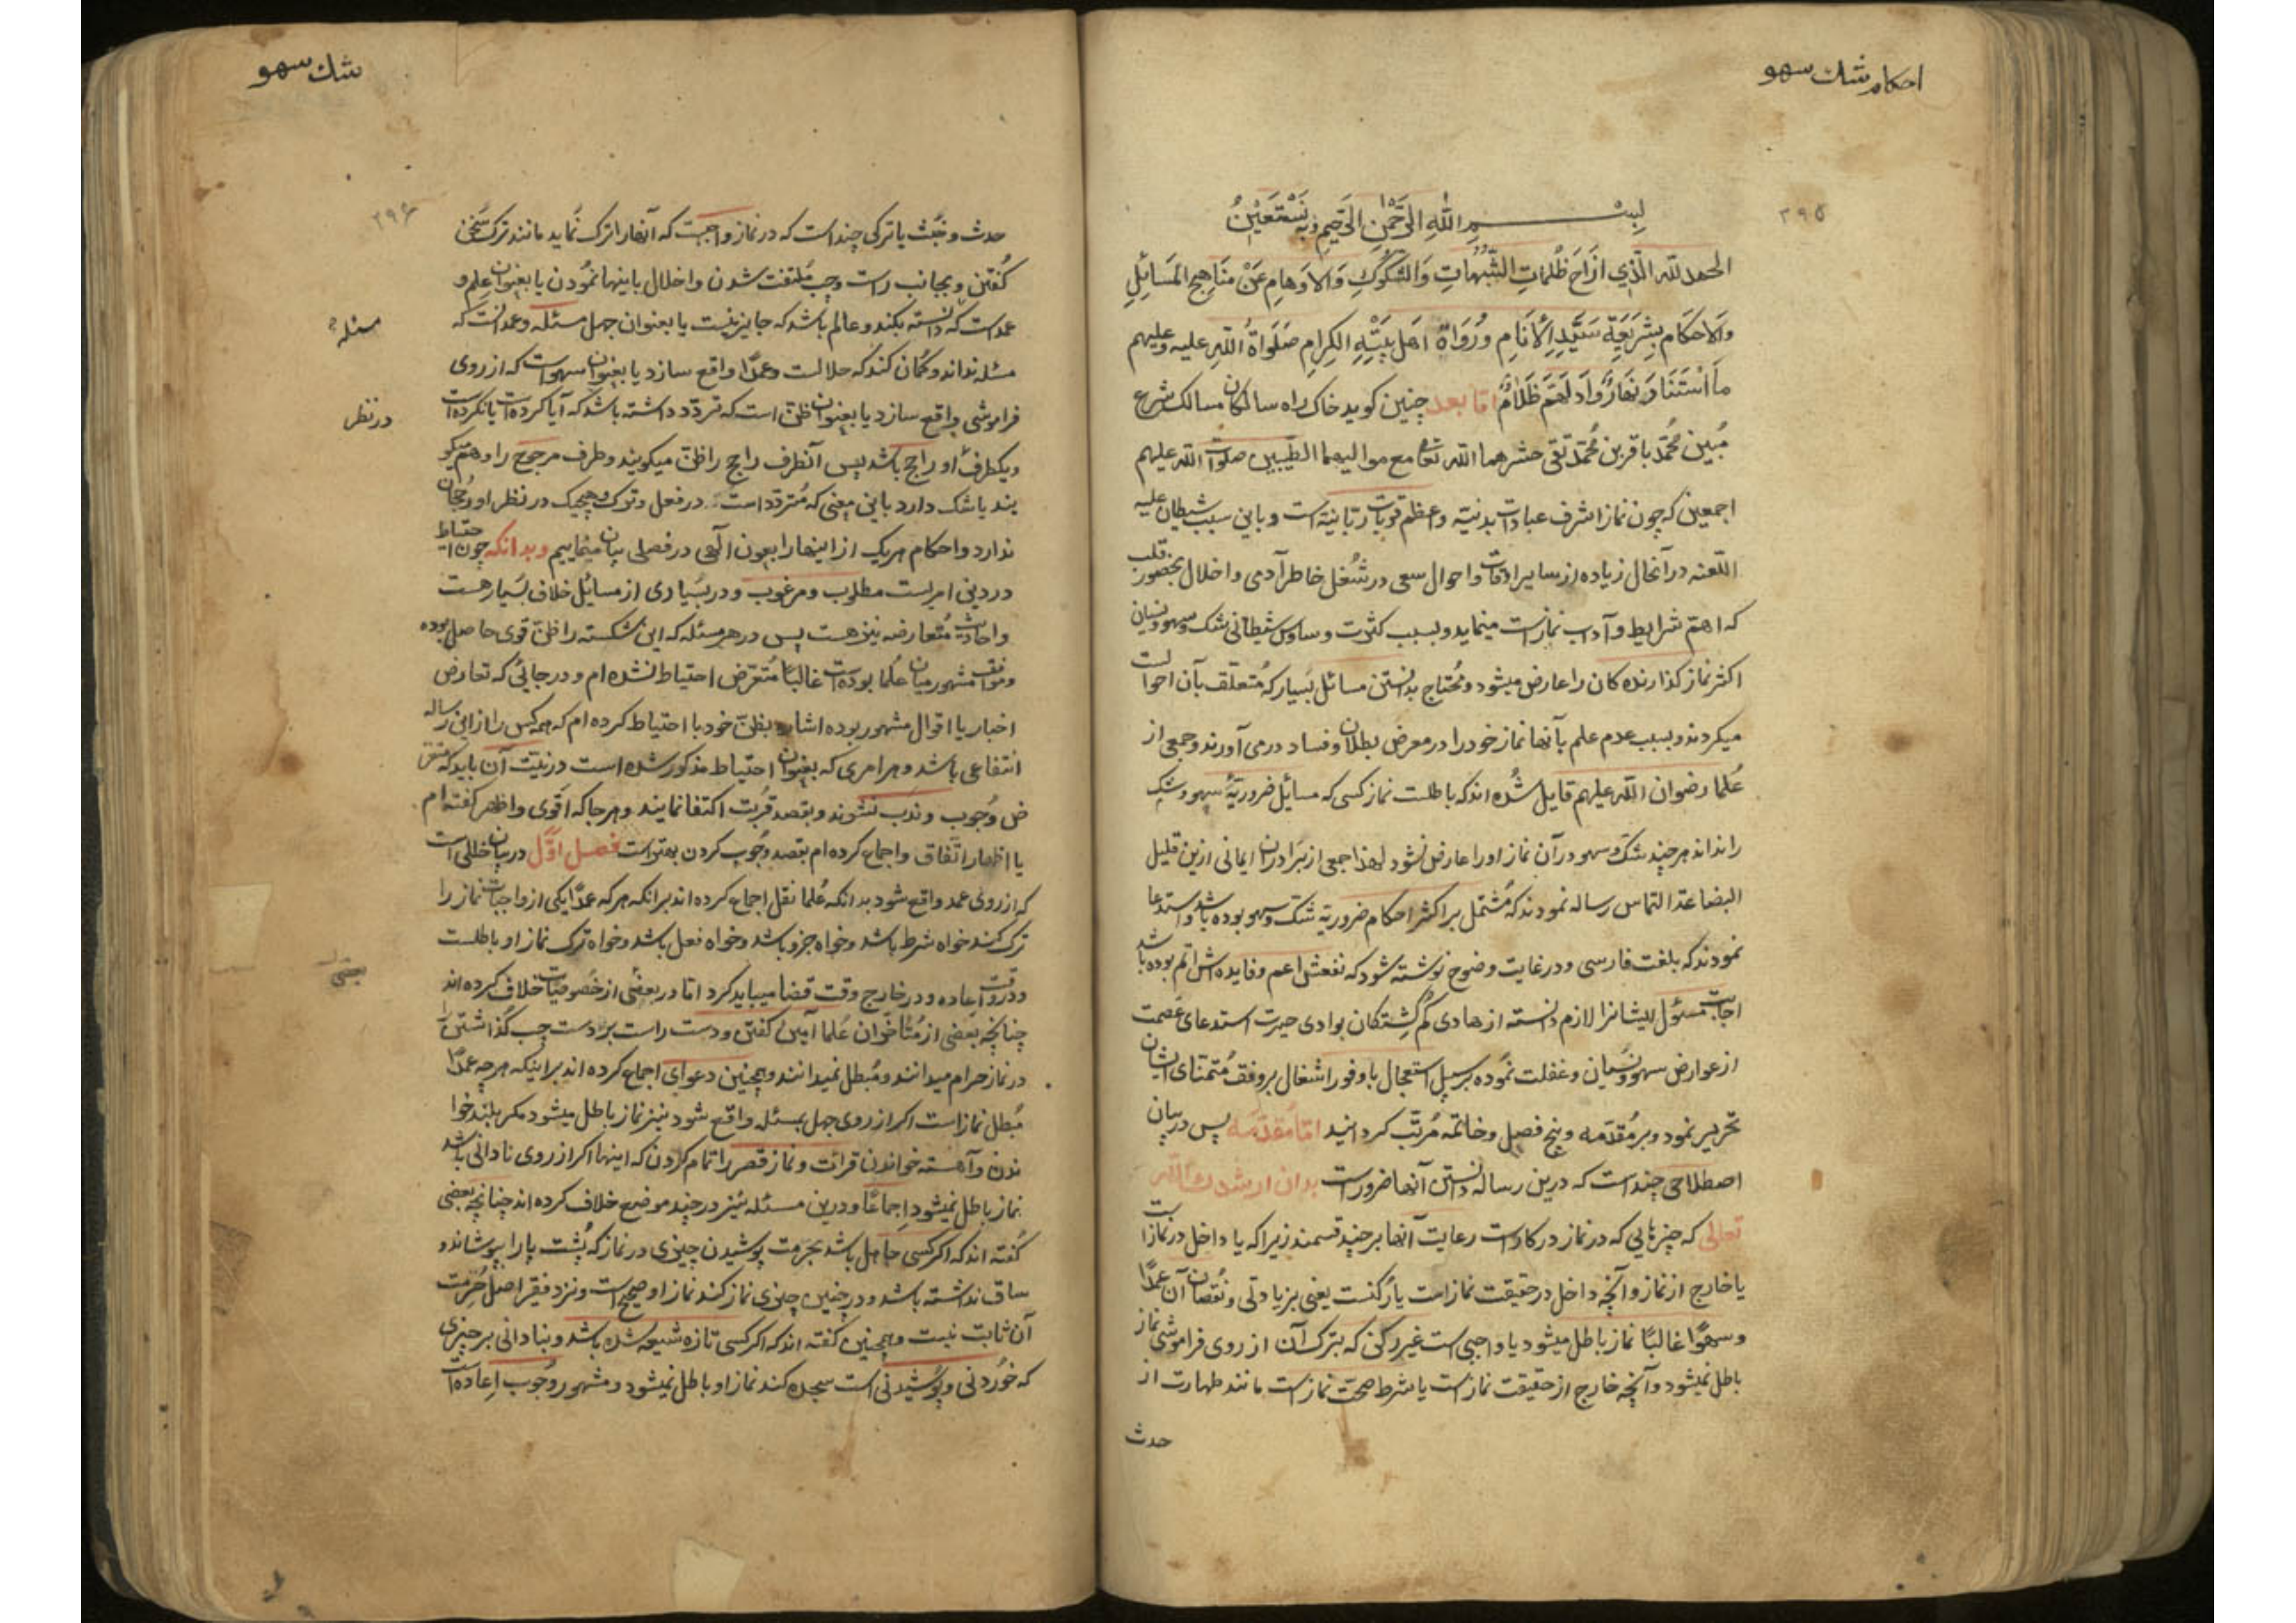 احکام شك سهو
۲۹۵
بسم الله الرحمن الرحیم وبه نستعین
الحمد لله الذي ازاح ظلمات الشبهات والشکوك والاوهام عن مناهج المسائل
والاحکام بشریعة سید الانام ورواة اهل بیته الکرام صلواة الله علیه وعلیهم
ما استنار نهار وادلهم ظلام اما بعد چنین کوید خاك راه سالکان مسالك شرع
مبین محمد باقر بن محمد تقی حشرهما الله تعالی مع موالیهما الطیبین صلوات الله علیهم
اجمعین که چون نماز اشرف عبادات بدنیه و اعظم قربات ربانیه است و باین سبب شیطان علیه
اللعنه در آنحال زیاده از سایر اوقات و احوال سعی در شغل خاطر آدمی و اخلال بحضور قلب
که اهم شرایط و آداب نماز است مینماید و بسبب کثرت وساوس شیطانی شك و سهو و نسیان
اکثر نماز کذارنده کان را عارض میشود و محتاج بدانستن مسائل بسیار که متعلق بآن احوا لست
میکردند و بسبب عدم علم بآنها نماز خود را در معرض بطلان و فساد در می آورند و جمعی از
علما رضوان الله علیهم قایل شده اند که باطلست نماز کسی که مسائل ضروریهٔ سهو و شك
را نداند هر چند شك و سهو در آن نماز او را عارض نشود لهذا جمعی از برادران ایمانی ازین قلیل
البضاعة التماس رساله نمودند که مشتمل بر اکثر احکام ضروریه شك و سهو بوده باشد و استدعا
نمودند که بلغت فارسی و در غایت وضوح نوشته شود که نفعش اعم و فایده اش اتم بوده باشد
اجابت مسئول ایشانرا لازم دانسته از هادی کم کشتکان بوادی حیرت استدعای عصمت
از عوارض سهو و نسیان و غفلت نموده بر سبیل استعجال با وفور اشغال بر وفق متمنای ایشان
تحریر نمود و بر مقدمه و پنج فصل و خاتمه مرتب کردانید اما مقدمه پس در بیان
اصطلاحی چند است که درین رساله دانستن آنها ضرور است بدان ارشدك الله
تعالی که چیزهایی که در نماز در کار است رعایت آنها بر چند قسمند زیرا که یا داخل در نماز است
یا خارج از نماز و آنچه داخل در حقیقت نماز است یا رکنست یعنی بزیادتی و نقصان آن عمدا
و سهوا غالبا نماز باطل میشود یا واجبی است غیر رکنی که بترك آن از روی فراموشی نماز
باطل نمیشود و آنچه خارج از حقیقت نماز است یا شرط صحت نماز است مانند طهارت از
حدث
شك سهو
۲۹۶
حدث و خبث یا ترکی چند است که در نماز واجبست که آنها را ترك نماید مانند ترك سخن
کفتن و بجانب راست و چپ ملتفت شدن و اخلال باینها نمودن یا بعنوان علم و
عمد است که دانسته بکند و عالم باشد که جایز نیست یا بعنوان جهل مسئله و عمد است که
مسئله
مسئله نداند و کمان کند که حلالست و عمدا واقع سازد یا بعنوان سهو است که از روی
فراموشی واقع سازد یا بعنوان ظن است که تردد داشته باشد که آیا کرده است یا نکرده است
در نظر
و یکطرف او راجح باشد پس آنطرف راجح را ظن میکویند و طرف مرجوح را وهم میکو
یند یا شك دارد باین معنی که متردد است در فعل و ترك و هیچیك در نظر او رجحان
ندارد و احکام هر یك از اینها را بعون آلهی در فصلی بیان مینماییم و بدانکه چون احتیاط
در دین امریست مطلوب و مرغوب و در بسیاری از مسائل خلاف بسیار هست
و احادیث متعارضه نیز هست پس در هر مسئله که این شکسته را ظن قوی حاصل بوده
و موافق مشهور میان علما بوده است غالبا متعرض احتیاط نشده ام و در جائی که تعارض
اخبار یا اقوال مشهور بوده اشاره بظن خود با احتیاط کرده ام که همه کس را ازین رساله
انتفاعی باشد و هر امری که بعنوان احتیاط مذکور شده است در نیت آن باید که متعر
ض وجوب و ندب نشوند و بقصد قربت اکتفا نمایند و هر جا که اقوی و اظهر کفته ام
یا اظهار اتفاق و اجماع کرده ام بقصد وجوب کردن بهتر است فصل اول در بیان خللی است
که از روی عمد واقع شود بدانکه علما نقل اجماع کرده اند بر انکه هر که عمدا یکی از واجبات نماز را
ترك کند خواه شرط باشد و خواه جزو باشد و خواه فعل باشد و خواه ترك نماز او باطلست
و در وقت اعاده و در خارج وقت قضا میباید کرد اما در بعضی از خصوصیات خلاف کرده اند
بعضی
چنانچه بعضی از متأخران علما آمین کفتن و دست راست بر دست چپ کذاشتن را
در نماز حرام میدانند و مبطل نمیدانند و همچنین دعوای اجماع کرده اند بر اینکه هر چه عمدا
مبطل نماز است اکر از روی جهل بمسئله واقع شود نیز نماز باطل میشود مکر بلند خوا
ندن و آهسته خواندن قرائت و نماز قصر را تمام کردن که اینها اکر از روی نادانی باشد
نماز باطل نمیشود اجماعا و درین مسئله نیز در چند موضع خلاف کرده اند چنانچه بعضی
کفته اند که اکر کسی جاهل باشد بحرمت پوشیدن چیزی در نماز که پشت پا را بپوشاند و
ساق نداشته باشد و در چنین چیزی نماز کند نماز او صحیح است و نزد فقیر اصل حرمت
آن ثابت نیست و همچنین کفته اند که اکر کسی تازه شیعه شده باشد و بنادانی بر چیزی
که خوردنی و پوشیدنی است سجده کند نماز او باطل نمیشود و مشهور وجوب اعاده است